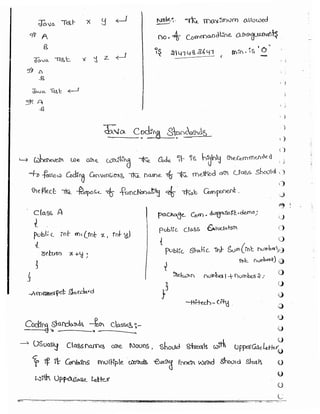 Java Test x y ↵
⇒ A
B
Java Test x y z ↵
⇒ A
B
Java Test ↵
⇒ A
B
Note:- The maximum allowed
no. of Commandline arguments
is 2147483647, min. is '0'
Java Coding Standards
→ Whenever we are writing the Code it is highly recommended
to follow Coding Conventions, The name of the method or class should
reflect the purpose of functionality of that Component.
Class A
{
public int m1(int x, int y)
{
return x+y;
}
}
-Ameerpet Standard
package Com.durgasoft.demo;
public class Calculator
{
public static int Sum(int number1,
int number2)
{
return number1+number2;
}
}
-Hitech-City
Coding Standards for Classes:-
→ Usually Classnames are Nouns, Should starts with UpperCase letter
& if it Contains multiple words Every inner word should starts
with Uppercase letter